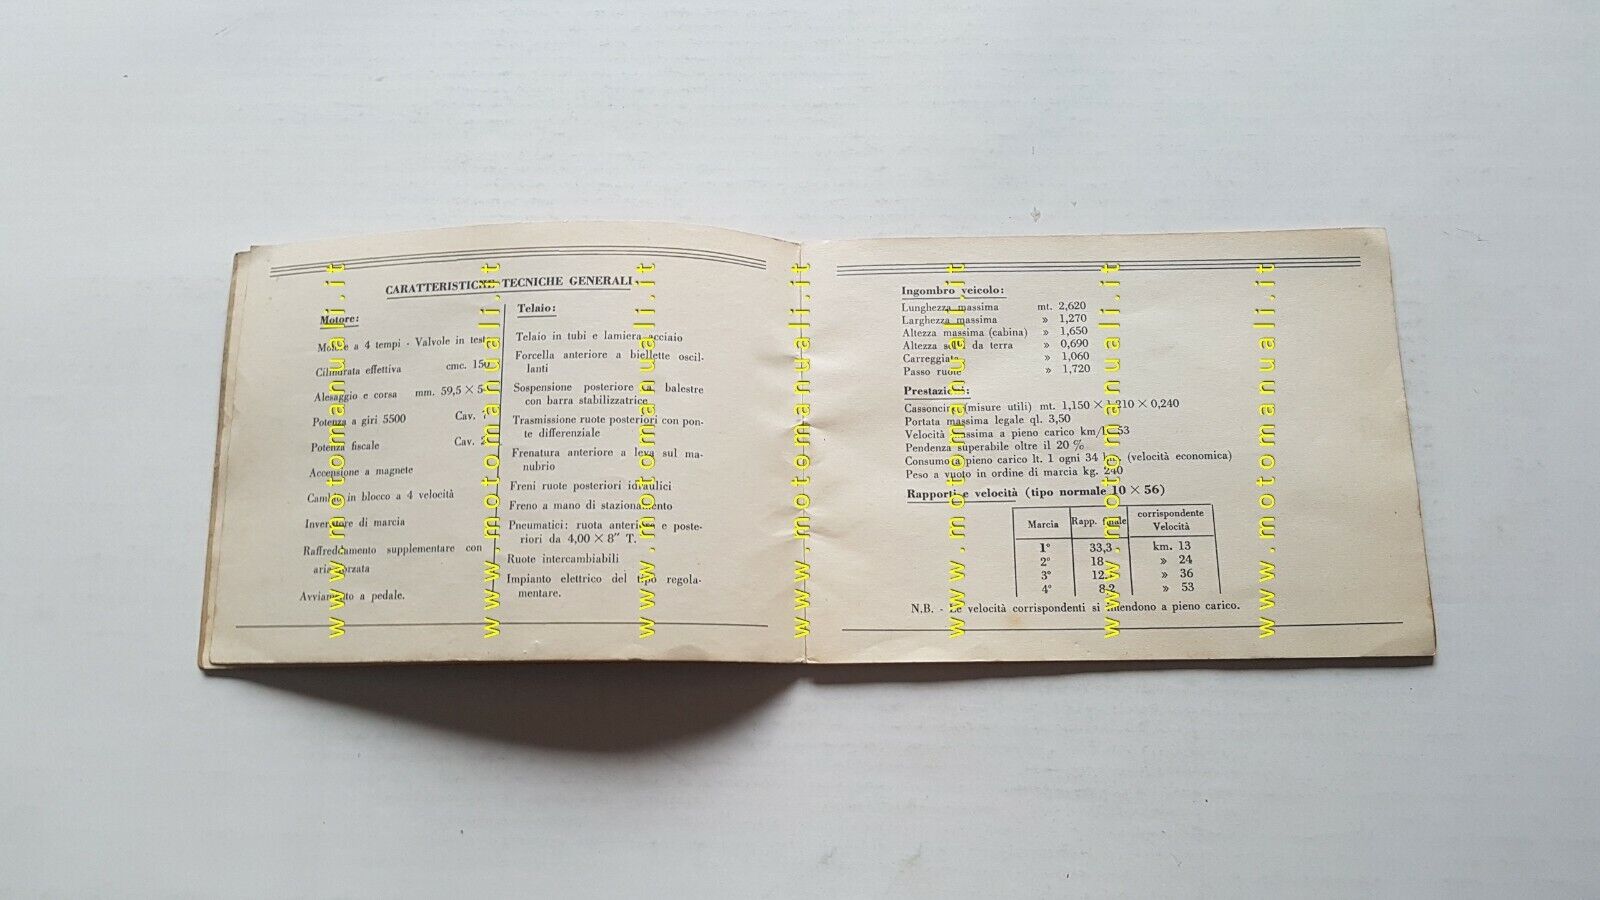 CARATTERISTICHE TECNICHE GENERALI
Motore:
Motore a 4 tempi - Valvole in testa
Cilindrata effettiva cmc. 150
Alesaggio e corsa mm. 59,5 ×
Potenza a giri 5500 Cav.
Potenza fiscale Cav.
Accensione a magnete
Cambio in blocco a 4 velocità
Invertitore di marcia
Raffreddamento supplementare con
aria forzata
Avviamento a pedale.
Telaio:
Telaio in tubi e lamiera acciaio
Forcella anteriore a biellette oscil-
lanti
Sospensione posteriore a balestre
con barra stabilizzatrice
Trasmissione ruote posteriori con pon-
te differenziale
Frenatura anteriore a leva sul ma-
nubrio
Freni ruote posteriori idraulici
Freno a mano di stazionamento
Pneumatici: ruota anteriore e poste-
riori da 4,00 × 8" T.
Ruote intercambiabili
Impianto elettrico del tipo regola-
mentare.
Ingombro veicolo:
Lunghezza massima mt. 2,620
Larghezza massima » 1,270
Altezza massima (cabina) » 1,650
Altezza sella da terra » 0,690
Carreggiata » 1,060
Passo ruote » 1,720
Prestazioni:
Cassoncino (misure utili) mt. 1,150 × 1,210 × 0,240
Portata massima legale ql. 3,50
Velocità massima a pieno carico km/h. 53
Pendenza superabile oltre il 20 %
Consumo a pieno carico lt. 1 ogni 34 km. (velocità economica)
Peso a vuoto in ordine di marcia kg. 240
Rapporti e velocità (tipo normale 10 × 56)
Marcia Rapp. finale corrispondente Velocità
1° 33,3 km. 13
2° 18 » 24
3° » 36
4° 8,2 » 53
N.B. - Le velocità corrispondenti si intendono a pieno carico.
www.motomanuali.it
www.motomanuali.it
www.motomanuali.it
www.motomanuali.it
www.motomanuali.it
www.motomanuali.it
www.motomanuali.it